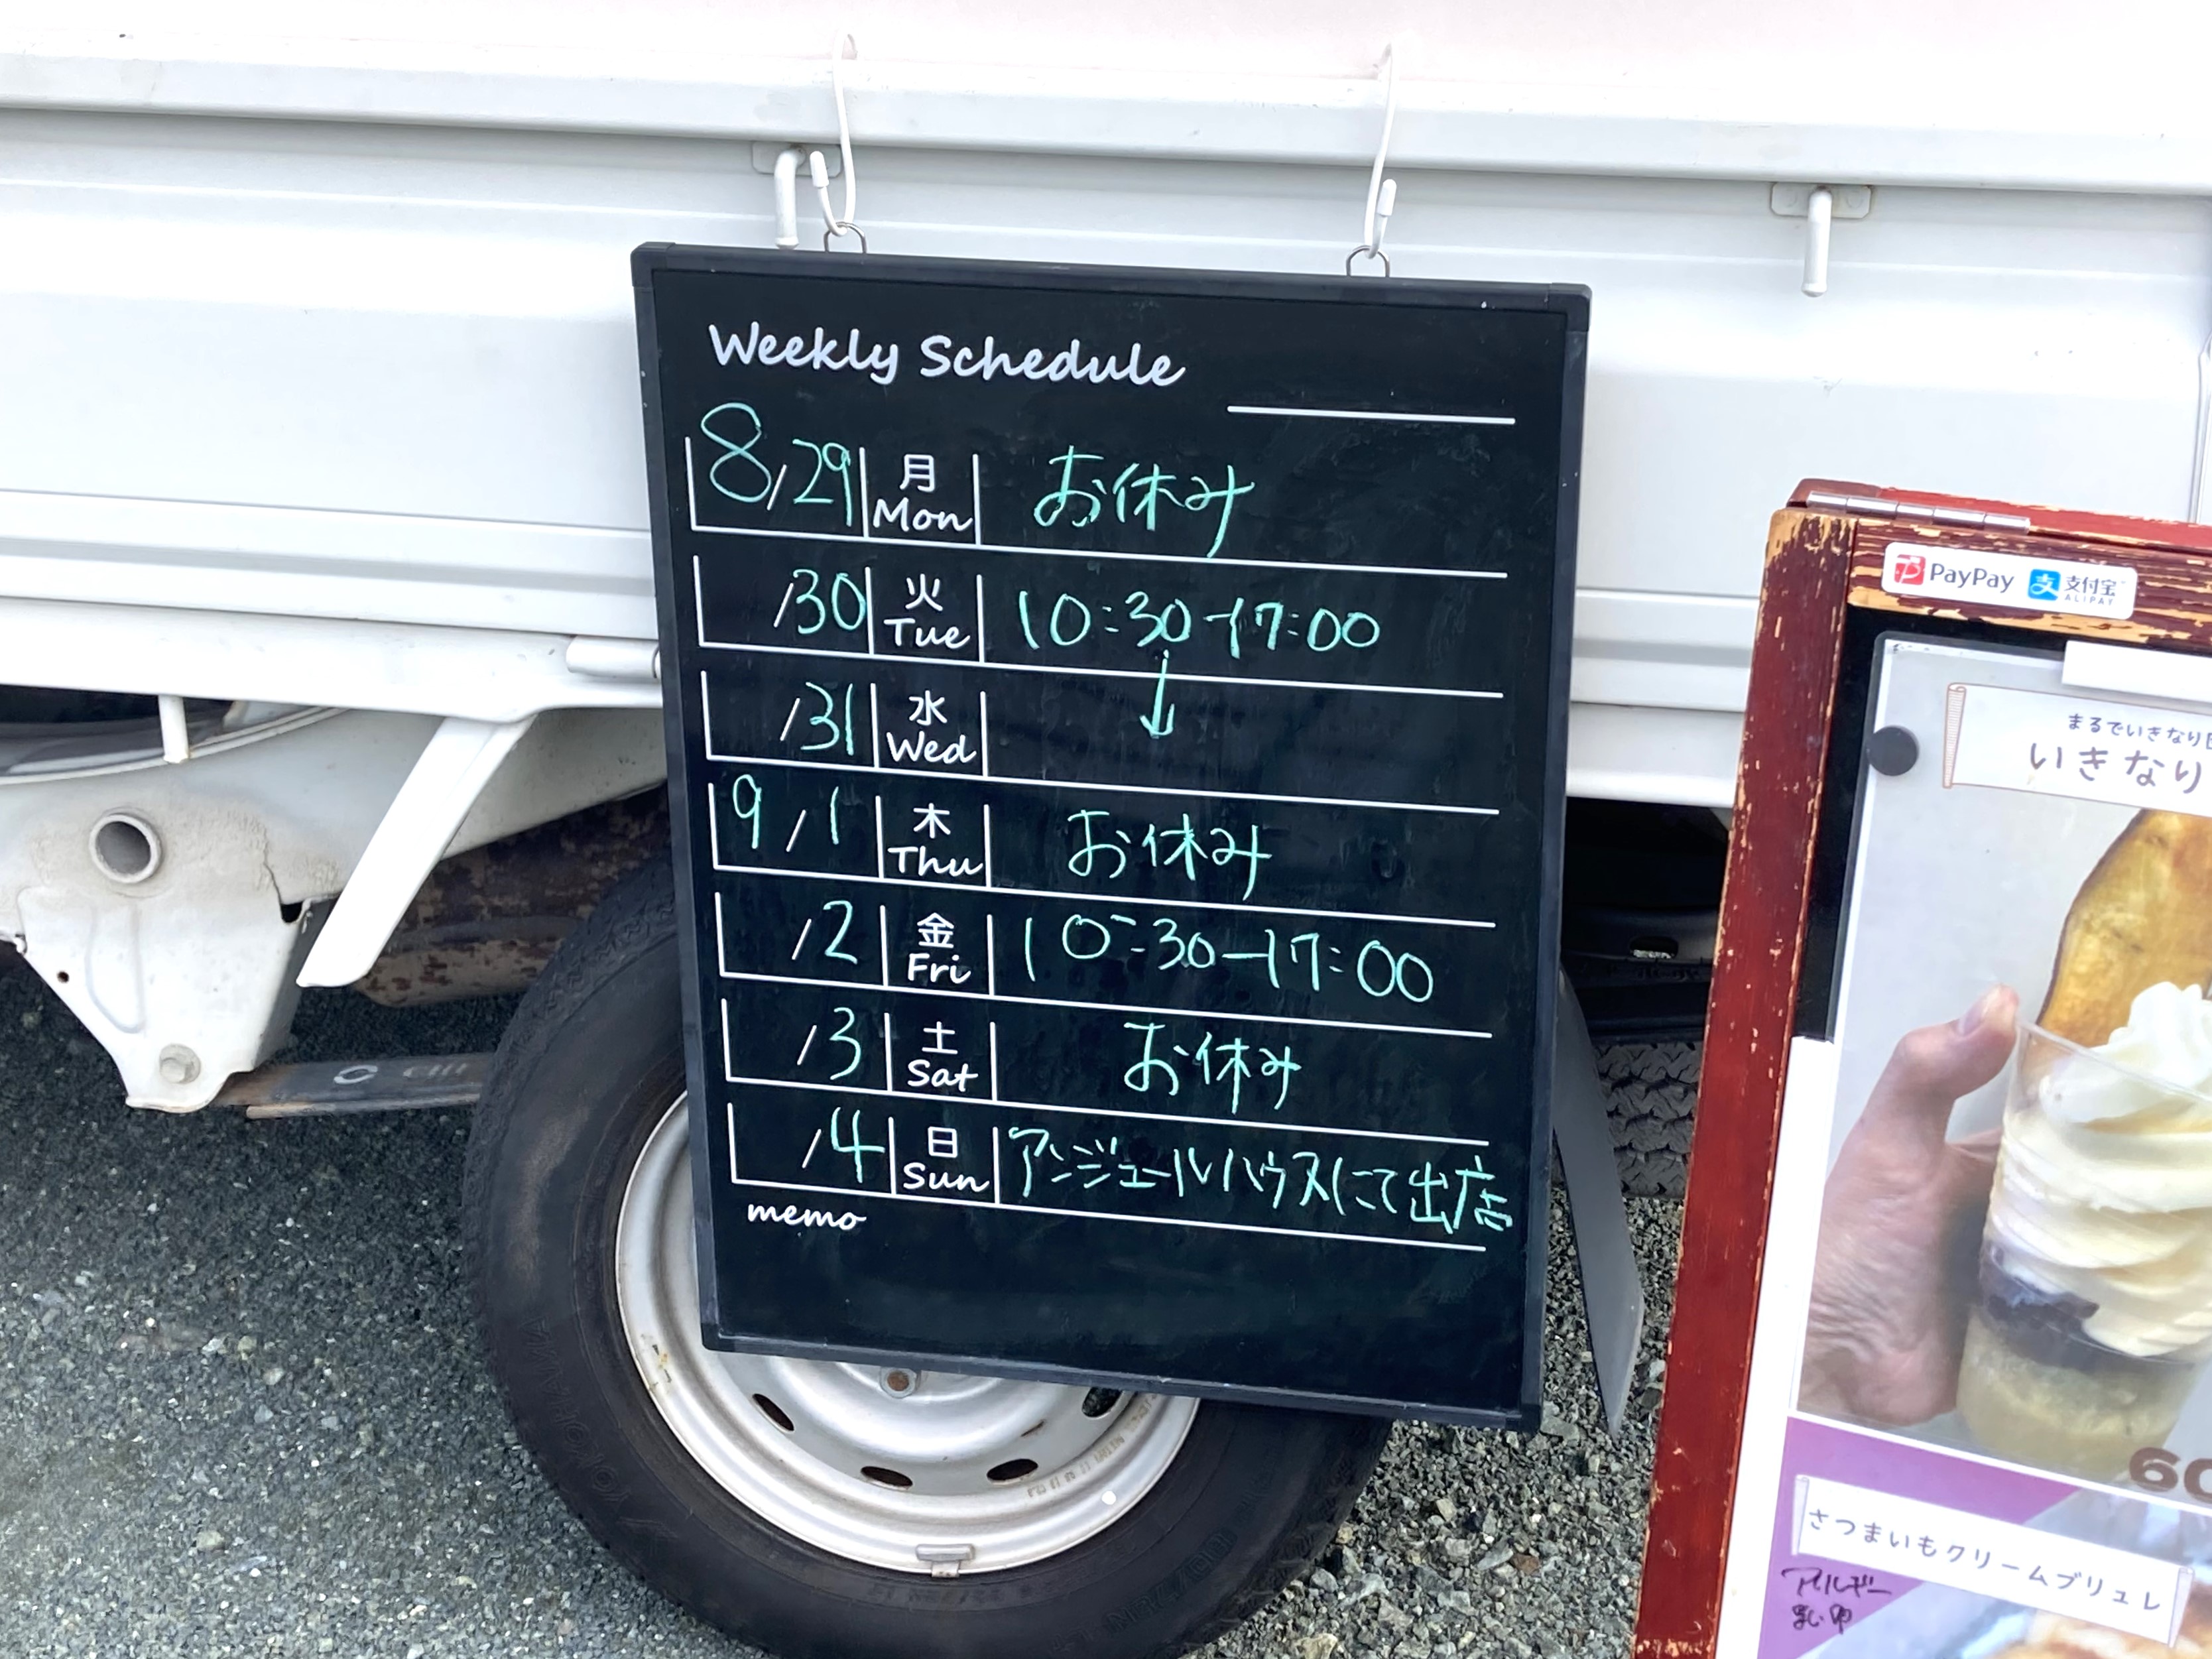 Weekly Schedule
8/29 月 Mon お休み
/30 火 Tue 10:30-17:00
/31 水 Wed ↓
9/1 木 Thu お休み
/2 金 Fri 10:30-17:00
/3 土 Sat お休み
/4 日 Sun アンジュールハウスにて出店
memo
PayPay 支付宝 ALIPAY
まるでいきなり
いきなり
60
さつまいもクリームブリュレ
アレルギー
乳 卵
YOKOHAMA